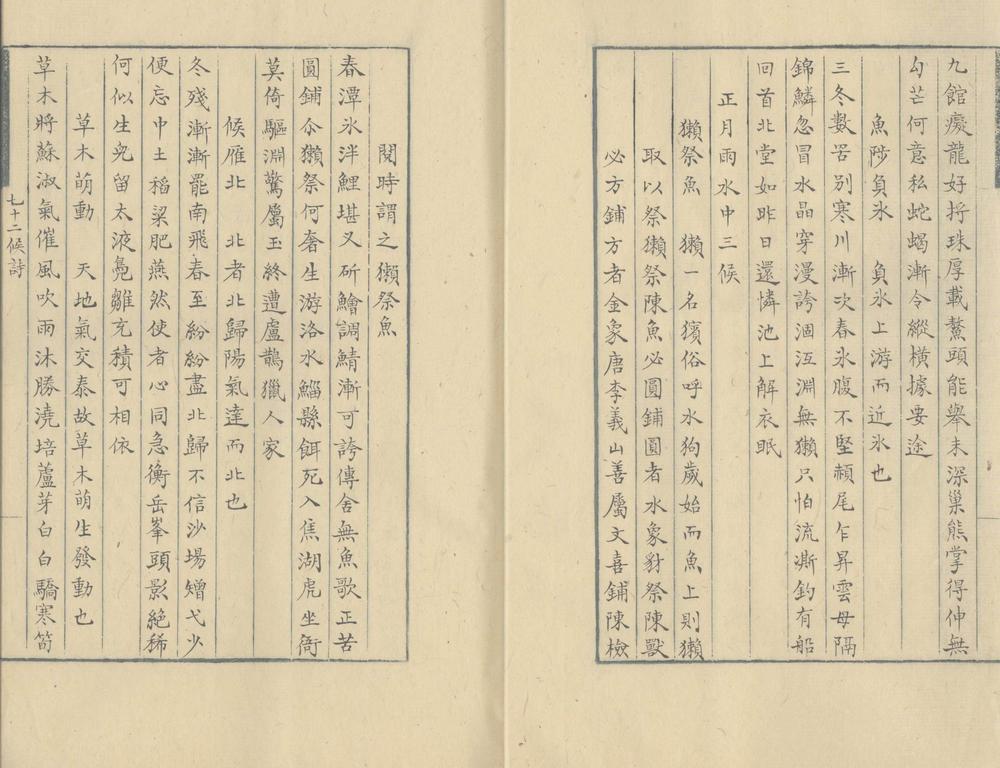 九館癡龍好捋珠厚載鰲頭能舉未深巢熊掌得伸無
勾芒何意私蛇蝎漸令縱橫據要途
魚陟負氷　負氷上游而近氷也
三冬數罟別寒川漸次春氷腹不堅頳尾乍昇雲母隔
錦鱗忽冒水晶穿漫誇涸沍淵無獺只怕流澌釣有船
回首北堂如昨日還憐池上解衣眠
正月雨水中三候
獺祭魚　獺一名獱俗呼水狗歲始而魚上則獺
取以祭獺祭陳魚必圓鋪圓者水象豺祭陳獸
必方鋪方者金象唐李義山善屬文喜鋪陳檢
閱時謂之獺祭魚
春潭氷泮鯉堪叉斫鱠調鯖漸可誇傳舍無魚歌正苦
圓鋪尒獺祭何奢生游洛水鯔縣餌死入焦湖虎坐衙
莫倚驅淵驚屬玉終遭盧鵲獵人家
候雁北　北者北歸陽氣達而北也
冬殘漸漸罷南飛春至紛紛盡北歸不信沙場矰弋少
便忘中土稻粱肥燕然使者心同急衡岳峯頭影絕稀
何似生兒留太液鳧雛充積可相依
草木萌動　天地氣交泰故草木萌生發動也
七十二候詩
草木將蘇淑氣催風吹雨沐勝澆培蘆芽白白驕寒筍